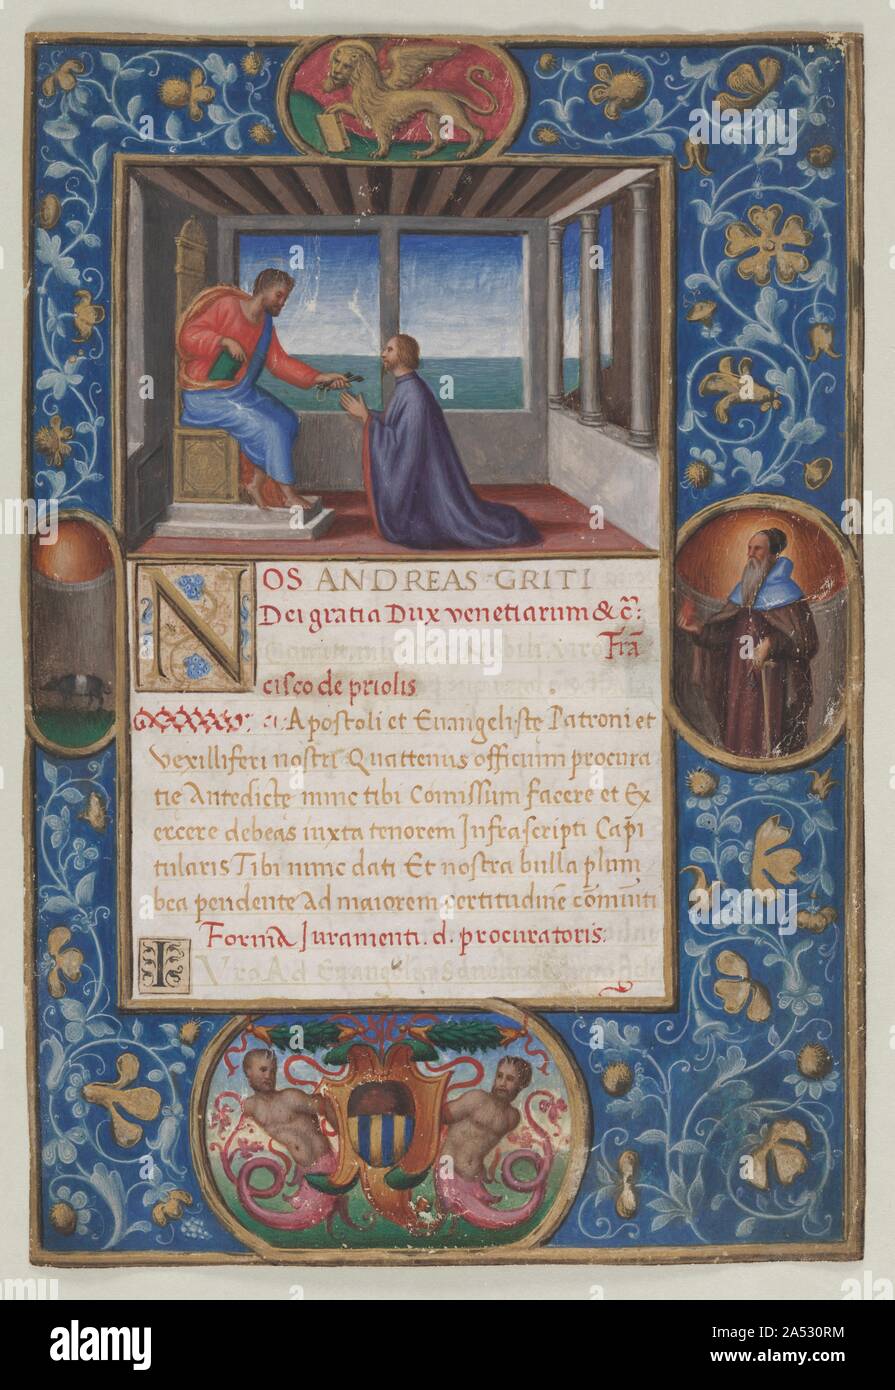 NOS ANDREAS GRITI
Dei gratia Dux venetiarum & c̃:
Frã
cisco de priolis
Apostoli et Euangelistę Patroni et
vexilliferi nostri Quattenus officium procura
tię Antedictę nunc tibi Comissum facere et Ex
ercere debeas iuxta tenorem Infrascripti Capi
tularis Tibi nunc dati Et nostra bulla plum
bea pendente Ad maiorem certitudinẽ
Forma Juramenti. d. procuratoris.
I
alamy
Image ID: 2A530RM
www.alamy.com